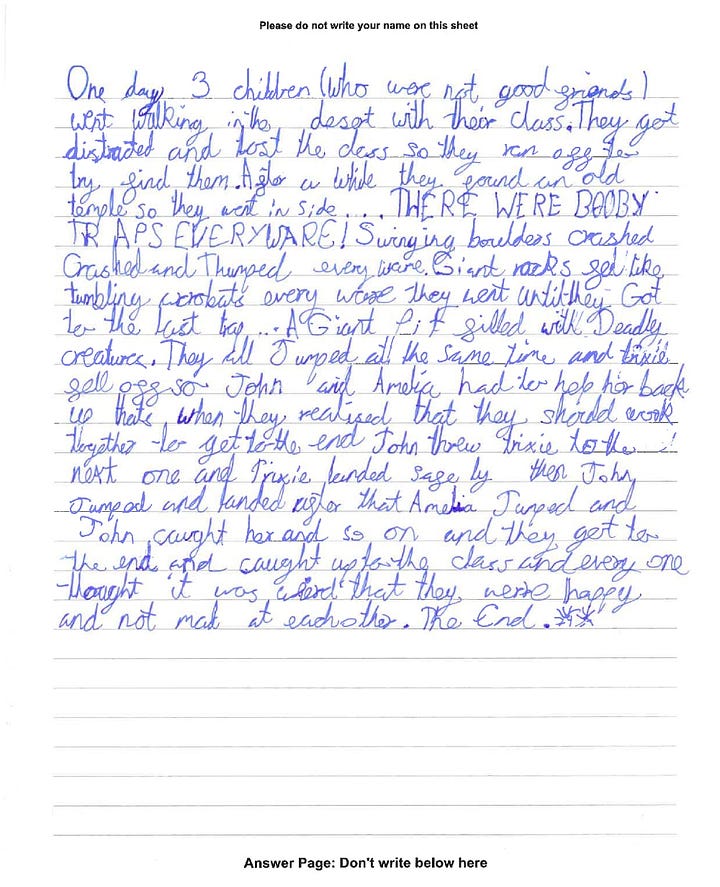 Please do not write your name on this sheet
One day 3 children (who were not good friends)
went walking in the desert with their class. They got
distracted and lost the class so they ran off to
try find them. After a while they found an old
temple so they went in side .... THERE WERE BOOBY
TRAPS EVERYWARE! Swinging boulders crashed
Crashed and Thumped every ware. Giant rocks fell like
tumbling acrobats every ware they went until they Got
to the last trap ... A Giant Pit filled with Deadly
creatures. They all Jumped at the same time and trixie
fell off so John and Amelia had to help her back
up thats when they realised that they should work
together to get to the end John threw trixie to the
next one and Trixie landed safe ly then John
Jumped and landed after that Amelia Jumped and
John caught her and so on and they got to
the end and caught up to the class and every one
thought it was weird that they were happy
and not mad at eachother. The End.
Answer Page: Don't write below here